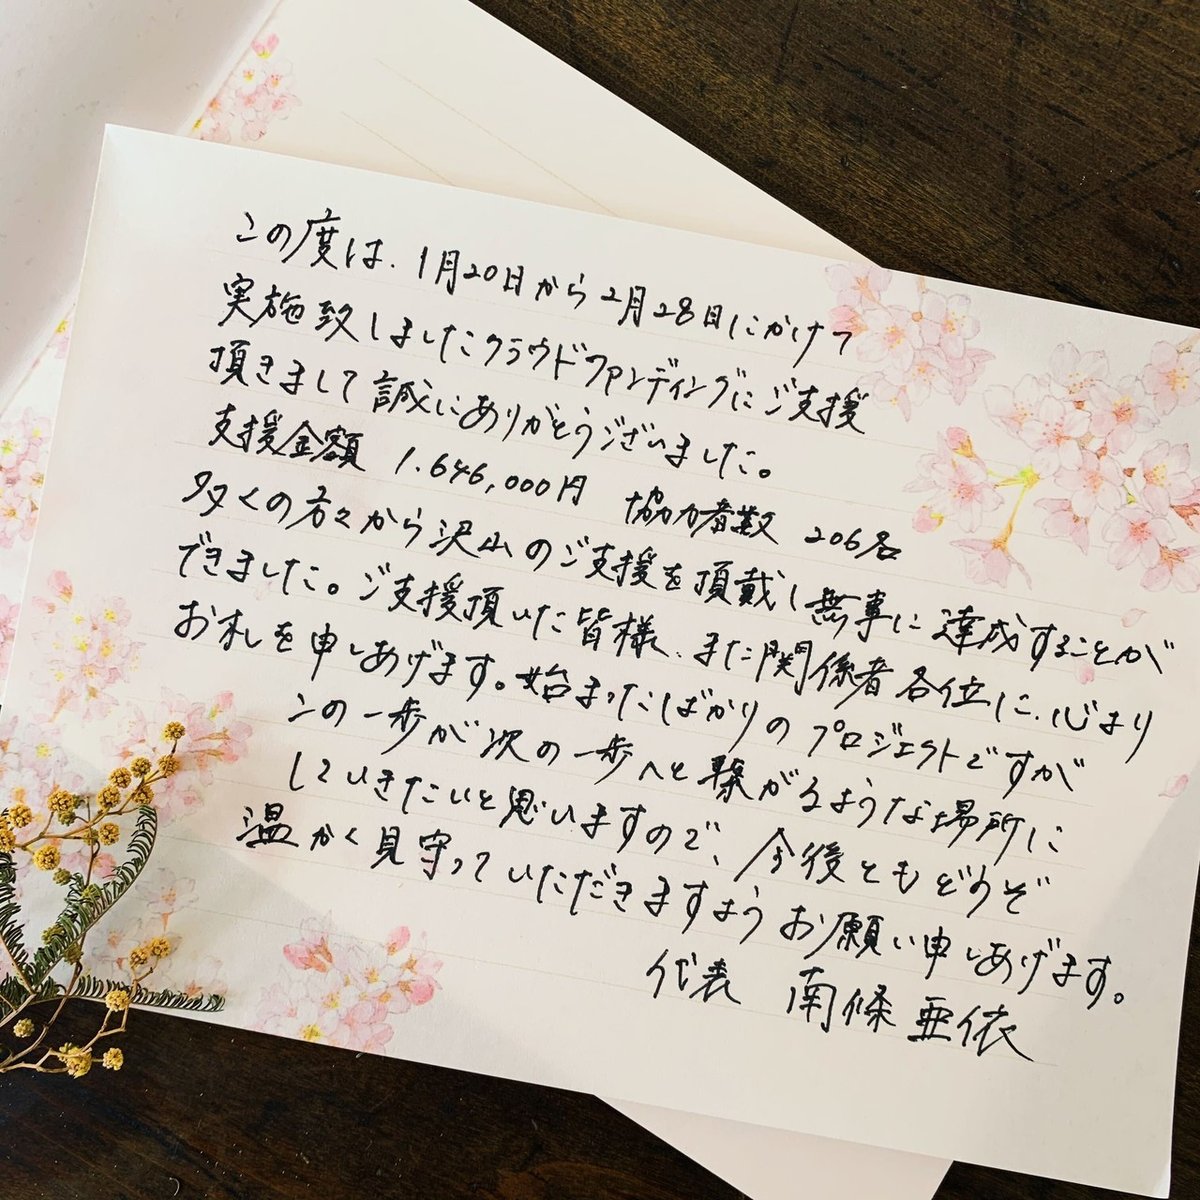 この度は、1月20日から2月28日にかけて
実施致しましたクラウドファンディングにご支援
頂きまして誠にありがとうございました。
支援金額 1.646,000円 協力者数 206名
多くの方々から沢山のご支援を頂戴し無事に達成することが
できました。ご支援頂いた皆様、また関係者各位に、心より
お礼を申しあげます。始まったばかりのプロジェクトですが
この一歩が次の一歩へと繋がるような場所に
していきたいと思いますので、今後ともどうぞ
温かく見守っていただきますようお願い申しあげます。
代表 南條亜依